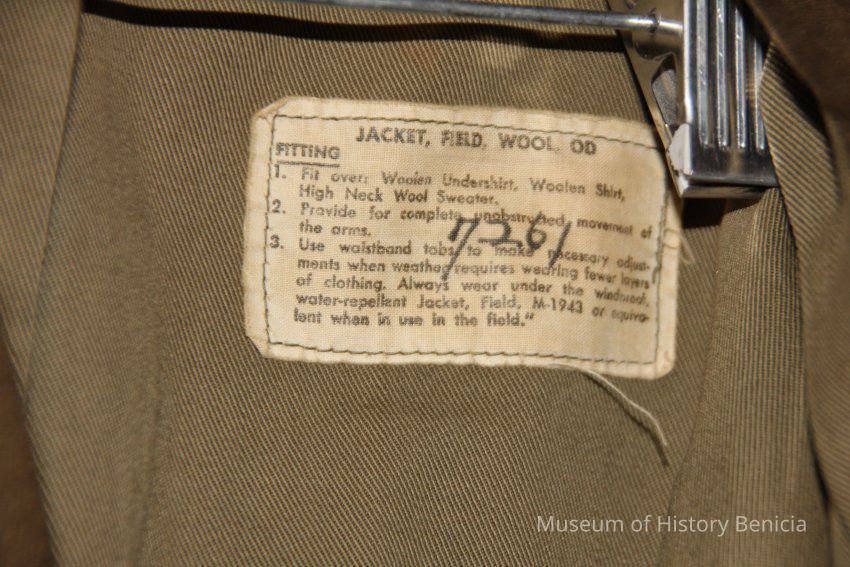 JACKET, FIELD, WOOL, OD
FITTING
1. Fit over: Woolen Undershirt, Woolen Shirt,
High Neck Wool Sweater.
2. Provide for complete unobstructed movement of
the arms.
3. Use waistband tabs to make necessary adjust-
ments when weather requires wearing fewer layers
of clothing. Always wear under the windproof,
water-repellent Jacket, Field, M-1943 or equiva-
lent when in use in the field."
7261
Museum of History Benicia